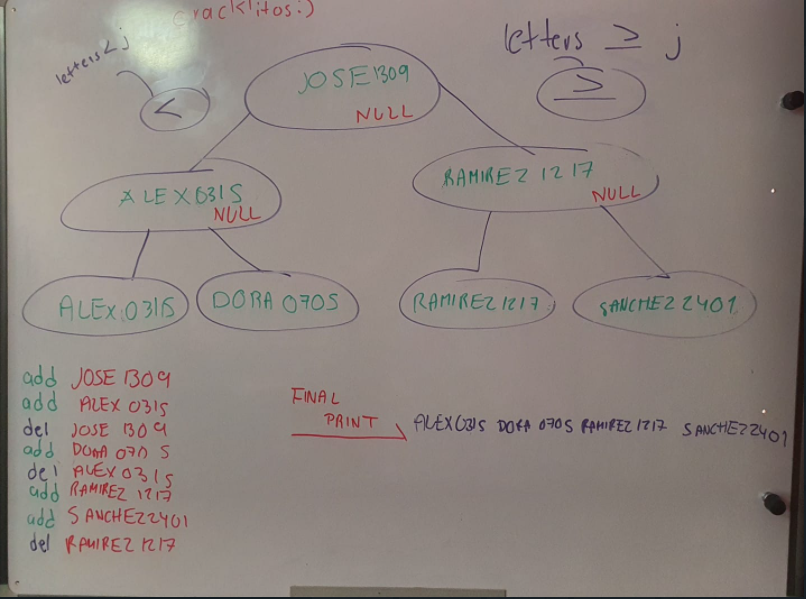 cracklitos:)
letters<j
<
letters ≥ j
≥
JOSE 1309
NULL
ALEX 0315
NULL
RAMIREZ 1217
NULL
ALEX 0315
DORA 0705
RAMIREZ 1217
SANCHEZ 2401
add JOSE 1309
add ALEX 0315
del JOSE 1309
add DORA 0705
del ALEX 0315
add RAMIREZ 1217
add SANCHEZ2401
del RAMIREZ 1217
FINAL
PRINT
ALEX0315 DORA 0705 RAMIREZ 1217 SANCHEZ2401